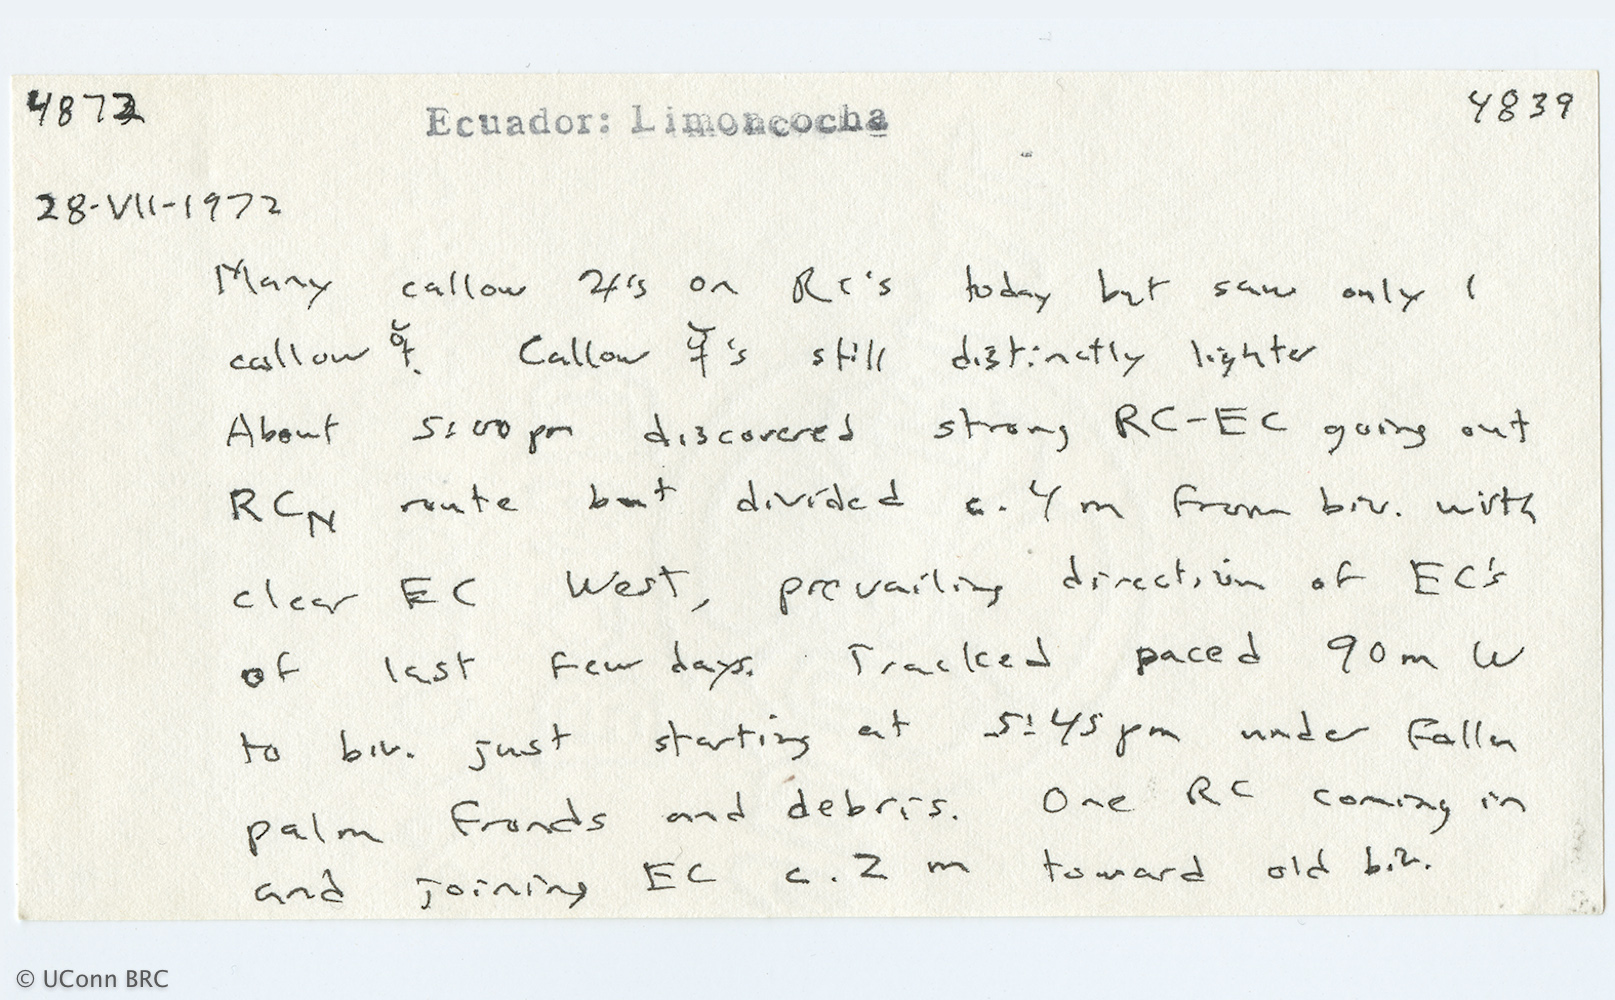 4872 Ecuador: Limoncocha 4839
28-VII-1972
Many callow 24's on RC's today but saw only 1
callow ☿. Callow ☿'s still distinctly lighter
About 5:00 pm discovered strong RC-EC going out
RCN route but divided c. 4 m from biv. with
clear EC West, prevailing direction of EC's
of last few days. Tracked paced 90 m W
to biv. just starting at 5:45 pm under fallen
palm fronds and debris. One RC coming in
and joining EC c. 2 m toward old biv.
© UConn BRC